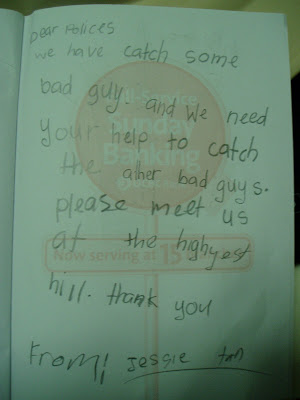 Dear Polices
we have catch some
bad guy and we need
your help to catch
the ather bad guys.
please meet us
at the highyest
hill. thank you
From! Jessie tan
Full-Service
Sunday
Banking
Now serving at 15